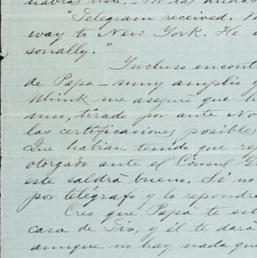 "Telegram received.
way to New York. He
sonally."
Incluso encont
de Papa - muy amplio y
me aseguró que
uno, tirado por ante No
las certificaciones posibles
que habian tenido que
otorgado ante el Cónsul
este saldrá bueno. Si no
por telégrafo y lo repondrá
Creo que Papa te est
casa de Tio, y él te dará
aunque no hay nada que